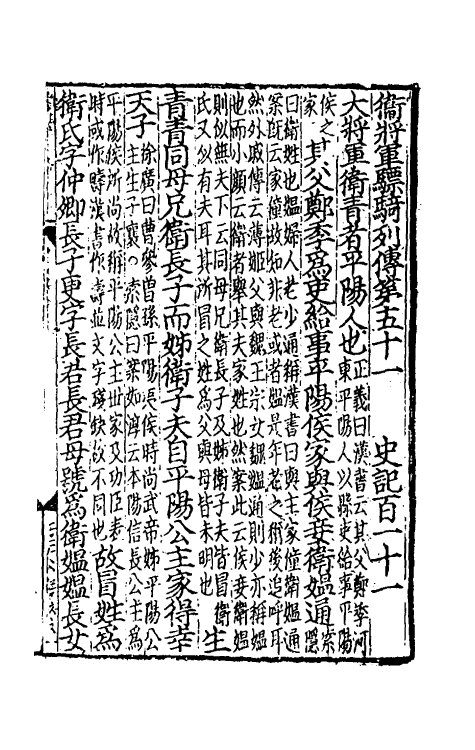 衞將軍驃騎列傳第五十一　史記百一十一
大將軍衛青者平陽人也正義曰漢書云其父鄭季河
東平陽人以縣吏給事平陽
侯之
家其父鄭季為吏給事平陽侯家與侯妾衛媼通索
隱
曰衛姓也媼婦人老少通稱漢書曰與主家僮衛媼通
案既云家僮故知非老或者媼是年老之稱後追呼耳
然外戚傳云薄姬父與魏王宗女魏媼通則少亦稱媼
也而小顏云衛者舉其夫家姓也然案此云侯妾衛媼
則似無夫下云同母兄衛長子及姊衛子夫皆冒衛
氏又似有夫耳其所冒之姓為父與母皆未明也生
青青同母兄衛長子而姊衛子夫自平陽公主家得幸
天子徐廣曰曹參曾孫平陽夷侯時尚武帝姊平陽公
主生子襄索隱曰案如淳云本陽信長公主為
平陽侯所尚故稱平陽公主世家及功臣表
時或作疇漢書作壽並文字殘缺故不同也故冒姓為
衛氏字仲卿長子更字長君長君母號為衛媼媼長女